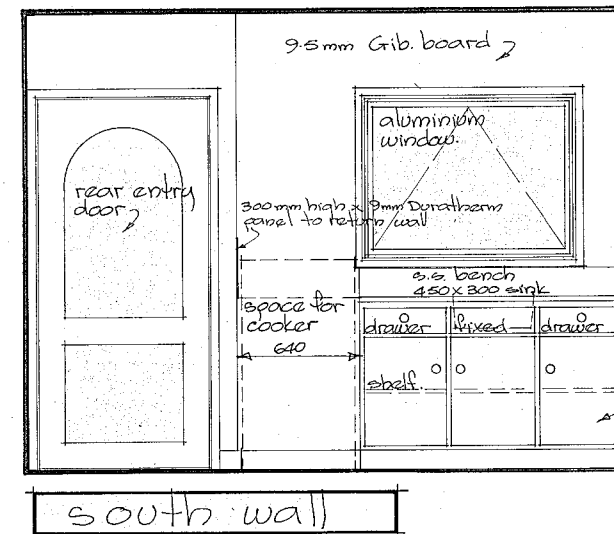 9.5mm Gib. board
aluminium
window.
rear entry
door
300mm high x 9mm Duratherm
panel to return wall
s.s. bench
450x300 sink
space for
cooker
drawer fixed drawer
640
shelf.
south wall